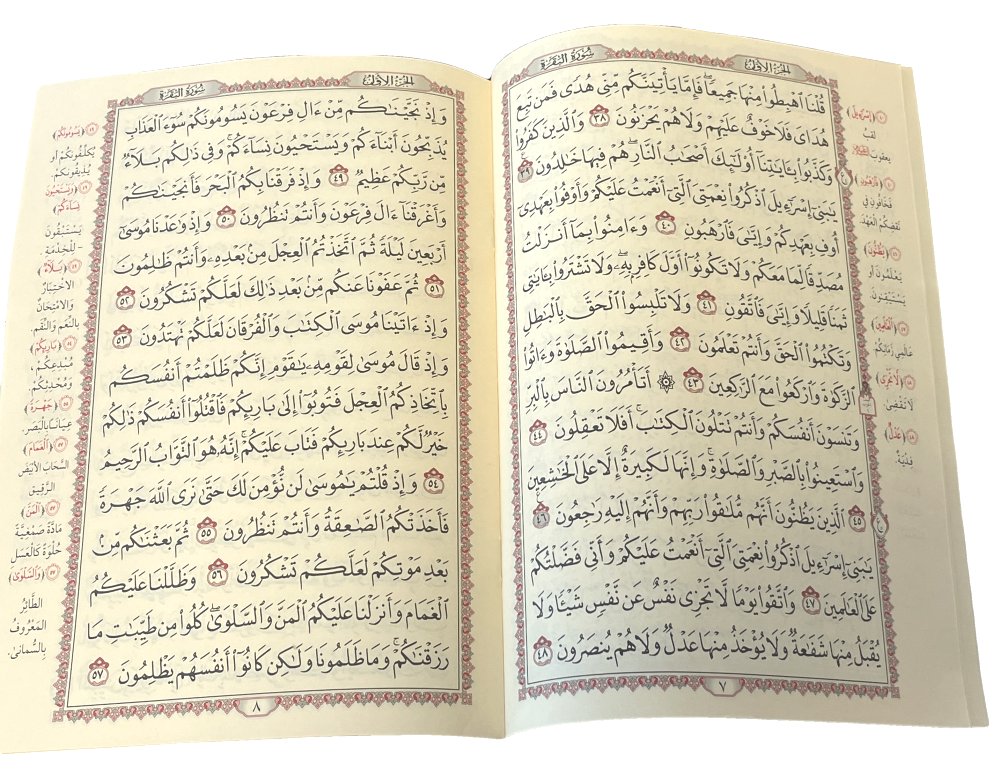 سُورَةُ البَقَرَة
الجُزءُ الأَوَّلُ
قُلْنَا ٱهْبِطُوا۟ مِنْهَا جَمِيعًۭا ۖ فَإِمَّا يَأْتِيَنَّكُم مِّنِّى هُدًۭى فَمَن تَبِعَ
هُدَاىَ فَلَا خَوْفٌ عَلَيْهِمْ وَلَا هُمْ يَحْزَنُونَ ٣٨ وَٱلَّذِينَ كَفَرُوا۟
وَكَذَّبُوا۟ بِـَٔايَـٰتِنَآ أُو۟لَـٰٓئِكَ أَصْحَـٰبُ ٱلنَّارِ ۖ هُمْ فِيهَا خَـٰلِدُونَ ٣٩
يَـٰبَنِىٓ إِسْرَٰٓءِيلَ ٱذْكُرُوا۟ نِعْمَتِىَ ٱلَّتِىٓ أَنْعَمْتُ عَلَيْكُمْ وَأَوْفُوا۟ بِعَهْدِىٓ
أُوفِ بِعَهْدِكُمْ وَإِيَّـٰىَ فَٱرْهَبُونِ ٤٠ وَءَامِنُوا۟ بِمَآ أَنزَلْتُ
مُصَدِّقًۭا لِّمَا مَعَكُمْ وَلَا تَكُونُوٓا۟ أَوَّلَ كَافِرٍۭ بِهِۦ ۖ وَلَا تَشْتَرُوا۟ بِـَٔايَـٰتِى
ثَمَنًۭا قَلِيلًۭا وَإِيَّـٰىَ فَٱتَّقُونِ ٤١ وَلَا تَلْبِسُوا۟ ٱلْحَقَّ بِٱلْبَـٰطِلِ
وَتَكْتُمُوا۟ ٱلْحَقَّ وَأَنتُمْ تَعْلَمُونَ ٤٢ وَأَقِيمُوا۟ ٱلصَّلَوٰةَ وَءَاتُوا۟
ٱلزَّكَوٰةَ وَٱرْكَعُوا۟ مَعَ ٱلرَّٰكِعِينَ ٤٣ ۞ أَتَأْمُرُونَ ٱلنَّاسَ بِٱلْبِرِّ
وَتَنسَوْنَ أَنفُسَكُمْ وَأَنتُمْ تَتْلُونَ ٱلْكِتَـٰبَ ۚ أَفَلَا تَعْقِلُونَ ٤٤
وَٱسْتَعِينُوا۟ بِٱلصَّبْرِ وَٱلصَّلَوٰةِ ۚ وَإِنَّهَا لَكَبِيرَةٌ إِلَّا عَلَى ٱلْخَـٰشِعِينَ
٤٥ ٱلَّذِينَ يَظُنُّونَ أَنَّهُم مُّلَـٰقُوا۟ رَبِّهِمْ وَأَنَّهُمْ إِلَيْهِ رَٰجِعُونَ ٤٦
يَـٰبَنِىٓ إِسْرَٰٓءِيلَ ٱذْكُرُوا۟ نِعْمَتِىَ ٱلَّتِىٓ أَنْعَمْتُ عَلَيْكُمْ وَأَنِّى فَضَّلْتُكُمْ
عَلَى ٱلْعَـٰلَمِينَ ٤٧ وَٱتَّقُوا۟ يَوْمًۭا لَّا تَجْزِى نَفْسٌ عَن نَّفْسٍۢ شَيْـًۭٔا وَلَا
يُقْبَلُ مِنْهَا شَفَـٰعَةٌۭ وَلَا يُؤْخَذُ مِنْهَا عَدْلٌۭ وَلَا هُمْ يُنصَرُونَ ٤٨
٧
لقبُ
تَخَافُونِ فِي
نَقْضِكُمُ العَهْدَ
٤٦ ﴿يَظُنُّونَ﴾
يَعْلَمُونَ أو
يَسْتَيْقِنُونَ
٤٧ ﴿العَالَمِينَ﴾
عَالَمِي زَمَانِكُمْ
٤٨ ﴿لَا تَجْزِي﴾
لَا تَقْضِي
٤٨ ﴿عَدْلٌ﴾
فِدْيَةٌ
سُورَةُ البَقَرَة
الجُزءُ الأَوَّلُ
وَإِذْ نَجَّيْنَـٰكُم مِّنْ ءَالِ فِرْعَوْنَ يَسُومُونَكُمْ سُوٓءَ ٱلْعَذَابِ
يُذَبِّحُونَ أَبْنَآءَكُمْ وَيَسْتَحْيُونَ نِسَآءَكُمْ ۚ وَفِى ذَٰلِكُم بَلَآءٌۭ
مِّن رَّبِّكُمْ عَظِيمٌۭ ٤٩ وَإِذْ فَرَقْنَا بِكُمُ ٱلْبَحْرَ فَأَنجَيْنَـٰكُمْ
وَأَغْرَقْنَآ ءَالَ فِرْعَوْنَ وَأَنتُمْ تَنظُرُونَ ٥٠ وَإِذْ وَٰعَدْنَا مُوسَىٰٓ
أَرْبَعِينَ لَيْلَةًۭ ثُمَّ ٱتَّخَذْتُمُ ٱلْعِجْلَ مِنۢ بَعْدِهِۦ وَأَنتُمْ ظَـٰلِمُونَ
٥١ ثُمَّ عَفَوْنَا عَنكُم مِّنۢ بَعْدِ ذَٰلِكَ لَعَلَّكُمْ تَشْكُرُونَ ٥٢
وَإِذْ ءَاتَيْنَا مُوسَى ٱلْكِتَـٰبَ وَٱلْفُرْقَانَ لَعَلَّكُمْ تَهْتَدُونَ ٥٣
وَإِذْ قَالَ مُوسَىٰ لِقَوْمِهِۦ يَـٰقَوْمِ إِنَّكُمْ ظَلَمْتُمْ أَنفُسَكُم
بِٱتِّخَاذِكُمُ ٱلْعِجْلَ فَتُوبُوٓا۟ إِلَىٰ بَارِئِكُمْ فَٱقْتُلُوٓا۟ أَنفُسَكُمْ ذَٰلِكُمْ
خَيْرٌۭ لَّكُمْ عِندَ بَارِئِكُمْ فَتَابَ عَلَيْكُمْ ۚ إِنَّهُۥ هُوَ ٱلتَّوَّابُ ٱلرَّحِيمُ
٥٤ وَإِذْ قُلْتُمْ يَـٰمُوسَىٰ لَن نُّؤْمِنَ لَكَ حَتَّىٰ نَرَى ٱللَّهَ جَهْرَةًۭ
فَأَخَذَتْكُمُ ٱلصَّـٰعِقَةُ وَأَنتُمْ تَنظُرُونَ ٥٥ ثُمَّ بَعَثْنَـٰكُم مِّنۢ
بَعْدِ مَوْتِكُمْ لَعَلَّكُمْ تَشْكُرُونَ ٥٦ وَظَلَّلْنَا عَلَيْكُمُ
ٱلْغَمَامَ وَأَنزَلْنَا عَلَيْكُمُ ٱلْمَنَّ وَٱلسَّلْوَىٰ ۖ كُلُوا۟ مِن طَيِّبَـٰتِ مَا
رَزَقْنَـٰكُمْ ۖ وَمَا ظَلَمُونَا وَلَـٰكِن كَانُوٓا۟ أَنفُسَهُمْ يَظْلِمُونَ ٥٧
٨
٤٩ ﴿يَسُومُونَكُمْ﴾
يُكَلِّفُونَكُمْ أو
يُذِيقُونَكُمْ
٤٩ ﴿وَيَسْتَحْيُونَ
نِسَاءَكُمْ﴾
يَسْتَبْقُونَ
- لِلْخِدْمَةِ -
٤٩ ﴿بَلَاءٌ﴾
الاخْتِبَارُ
وَالامْتِحَانُ
بِالنِّعَمِ وَالنِّقَمِ
٥٤ ﴿بَارِئِكُمْ﴾
مُبْدِعِكُمْ،
وَمُحْدِثِكُمْ
٥٥ ﴿جَهْرَةً﴾
عِيَانًا بِالْبَصَرِ
٥٧ ﴿الْغَمَامَ﴾
السَّحَابَ الأَبْيَضَ
الرَّقِيقَ
٥٧ ﴿الْمَنَّ﴾
مَادَّةً صَمْغِيَّةً
حُلْوَةً كَالْعَسَلِ
٥٧ ﴿وَالسَّلْوَى﴾
الطَّائِرُ
الْمَعْرُوفُ
بِالسُّمَانَى.